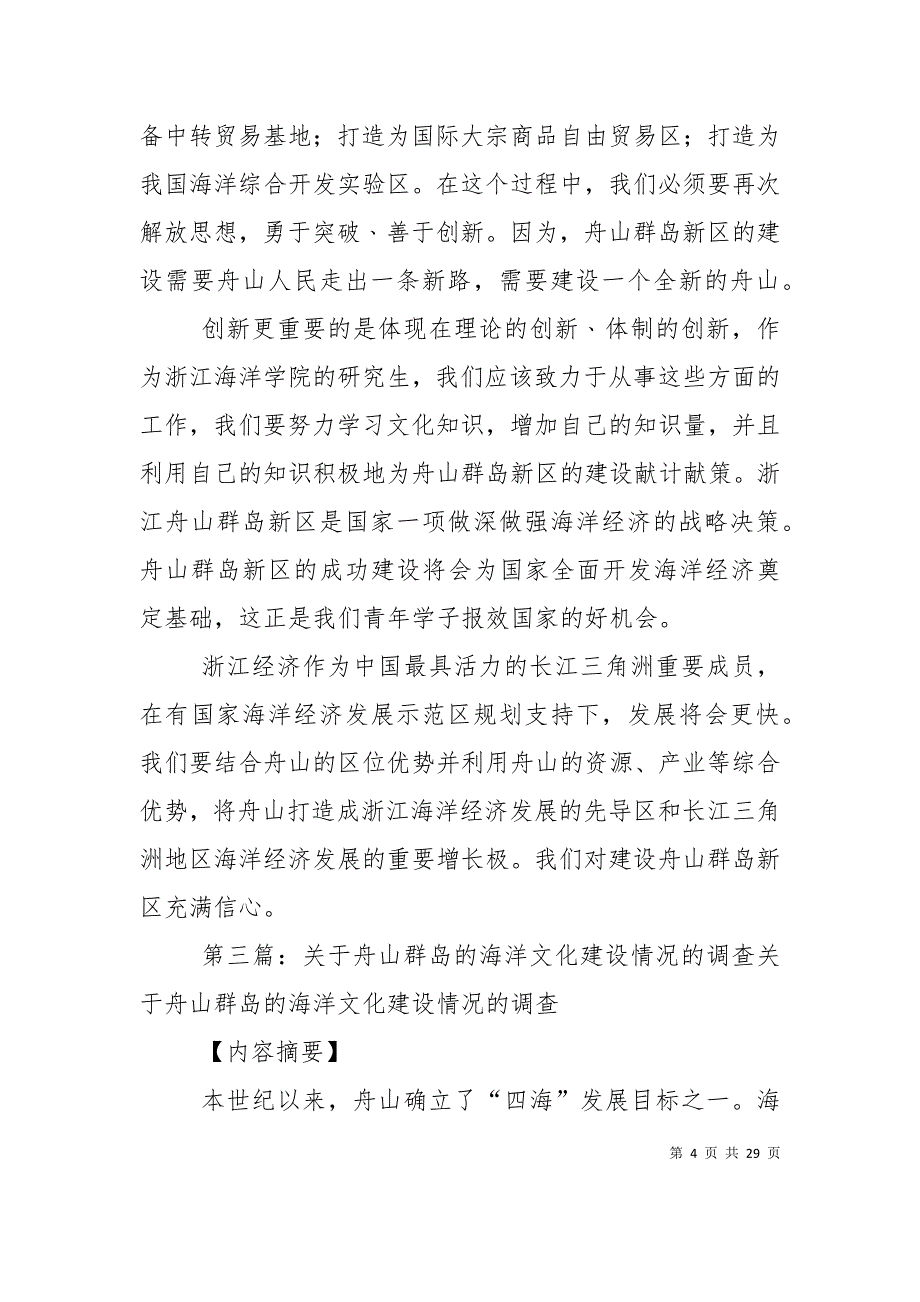 备中转贸易基地；打造为国际大宗商品自由贸易区；打造为
我国海洋综合开发实验区。在这个过程中，我们必须要再次
解放思想，勇于突破、善于创新。因为，舟山群岛新区的建
设需要舟山人民走出一条新路，需要建设一个全新的舟山。
创新更重要的是体现在理论的创新、体制的创新，作
为浙江海洋学院的研究生，我们应该致力于从事这些方面的
工作，我们要努力学习文化知识，增加自己的知识量，并且
利用自己的知识积极地为舟山群岛新区的建设献计献策。浙
江舟山群岛新区是国家一项做深做强海洋经济的战略决策。
舟山群岛新区的成功建设将会为国家全面开发海洋经济奠
定基础，这正是我们青年学子报效国家的好机会。
浙江经济作为中国最具活力的长江三角洲重要成员，
在有国家海洋经济发展示范区规划支持下，发展将会更快。
我们要结合舟山的区位优势并利用舟山的资源、产业等综合
优势，将舟山打造成浙江海洋经济发展的先导区和长江三角
洲地区海洋经济发展的重要增长极。我们对建设舟山群岛新
区充满信心。
第三篇：关于舟山群岛的海洋文化建设情况的调查关
于舟山群岛的海洋文化建设情况的调查
【内容摘要】
本世纪以来，舟山确立了“四海”发展目标之一。海
第 4 页 共 29 页